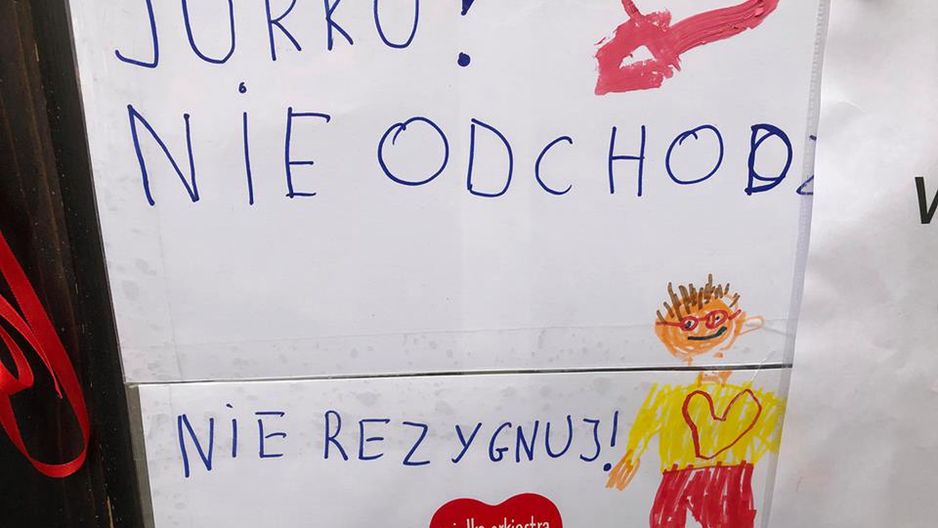 JURKU!
NIE ODCHODŹ
NIE REZYGNUJ!
wielka orkiestra